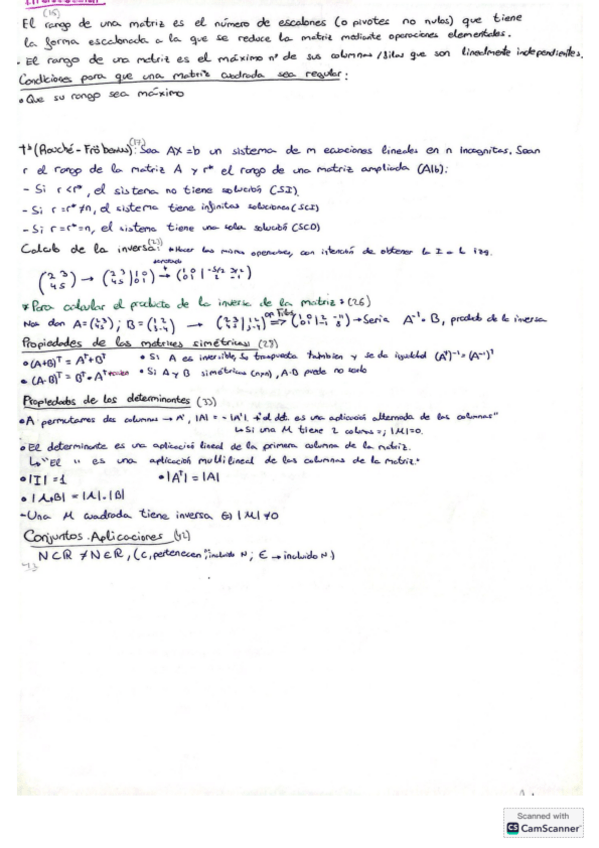 (15)
El rango de una matriz es el número de escalones (o pivotes no nulos) que tiene
la forma escalonada a la que se reduce la matriz mediante operaciones elementales.
• El rango de una matriz es el máximo nº de sus columnas/filas que son linealmente independientes.
Condiciones para que una matriz cuadrada sea regular:
• Que su rango sea máximo
Tª (Rouché-Fröbenius): (17) Sea AX=b un sistema de m ecuaciones lineales en n incognitas. Sean
r el rango de la matriz A y r* el rango de una matriz ampliada (A|b):
- Si r<r*, el sistema no tiene solución (SI)
- Si r=r*≠n, el sistema tiene infinitas soluciones (SCI)
- Si r=r*=n, el sistema tiene una sola solución (SCD)
Calculo de la inversa: Hacer las mismas operaciones, con intención de obtener la I a la izq.
(2 3 / 4 5) → (2 3 / 4 5 | 1 0 / 0 1) → (1 0 / 0 1 | -5/2 3/2 / 2 -1)
* Para calcular el producto de la inversa de la matriz: (26)
Nos dan A=(2 3 / 4 5); B=(1 2 / 3 -4) → op filas → Sería A⁻¹·B, producto de la inversa
Propiedades de las matrices simétricas (29)
• (A+B)ᵀ = Aᵀ+Bᵀ • Si A es inversible, su traspuesta tambien y se da igualdad (Aᵀ)⁻¹=(A⁻¹)ᵀ
• (A·B)ᵀ = Bᵀ·Aᵀ • Si A y B simétricas (nxn), A·B puede no serlo
Propiedades de los determinantes (33)
• A permutamos dos columnas → A', |A| = -|A'|, "el det. es una aplicación alternada de las columnas"
↳ Si una M tiene 2 colums =, |M|=0.
• El determinante es una aplicación lineal de la primera columna de la matriz.
↳ "El " es una aplicación multilineal de las columnas de la matriz"
• |I| = 1 • |Aᵀ| = |A|
• |A·B| = |A|·|B|
- Una M cuadrada tiene inversa ⇔ |M| ≠ 0
Conjuntos. Aplicaciones (42)
N⊂R ≠ N∈R, (⊂, pertenecen, incluido N; ∈ → incluido N)
43
Scanned with
CS CamScanner